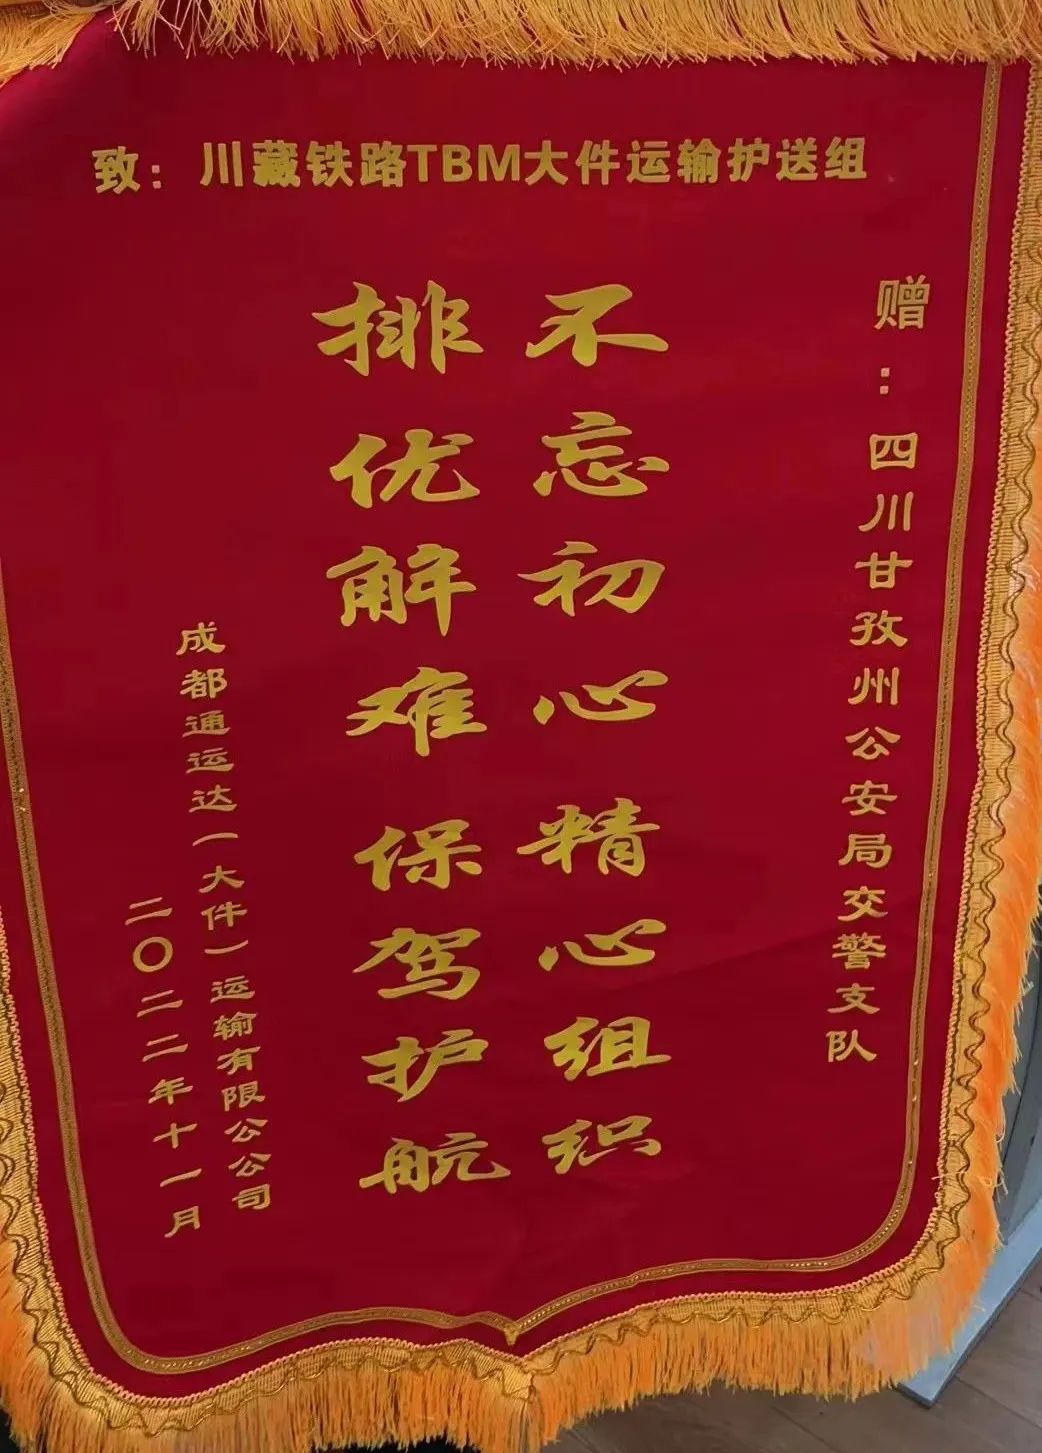 致：川藏铁路TBM大件运输护送组
赠：四川甘孜州公安局交警支队
不忘初心精心组织
排优解难保驾护航
成都通运达（大件）运输有限公公司
二〇二二年十一月